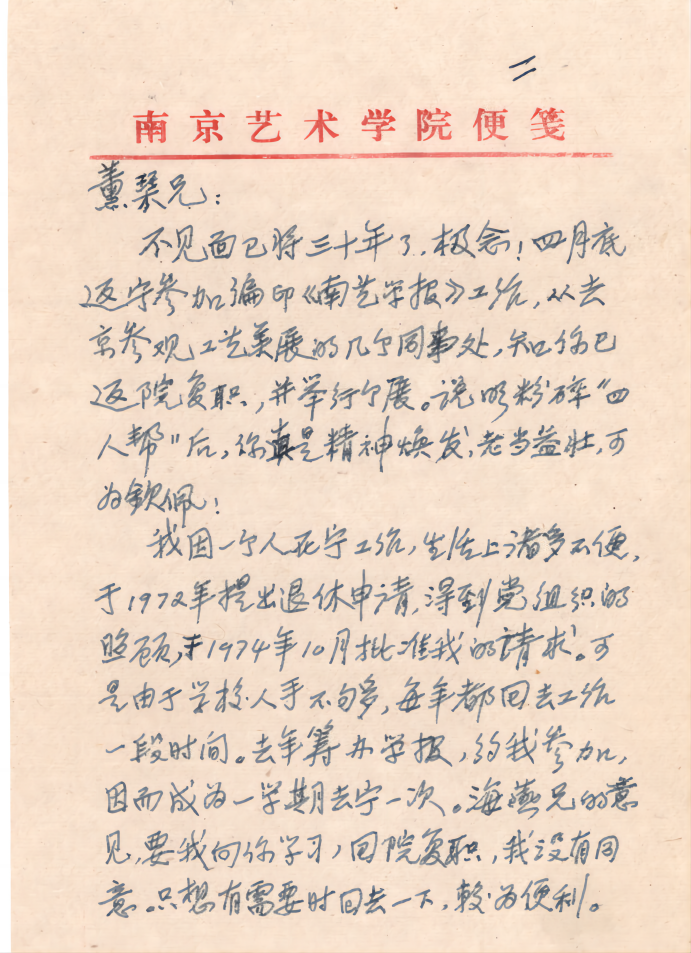 二
南京艺术学院便笺
薰琹兄：
不见面已将三十年了，极念！四月底
返宁参加编印《南艺学报》工作，从去
京参观工艺美展的几个同事处，知你已
返院复职，并举行个展。说明粉碎“四
人帮”后，你真是精神焕发，老当益壮，可
为钦佩！
我因一个人在宁工作，生活上诸多不便，
于1972年提出退休申请，得到党组织的
照顾，于1974年10月批准我的请求。可
是由于学校人手不句多，每年都回去工作
一段时间。去年筹办学报，约我参加，
因而成为一学期去宁一次。海燕兄的意
见，要我向你学习，回院复职，我没有同
意。只想有需要时回去一下，较为便利。